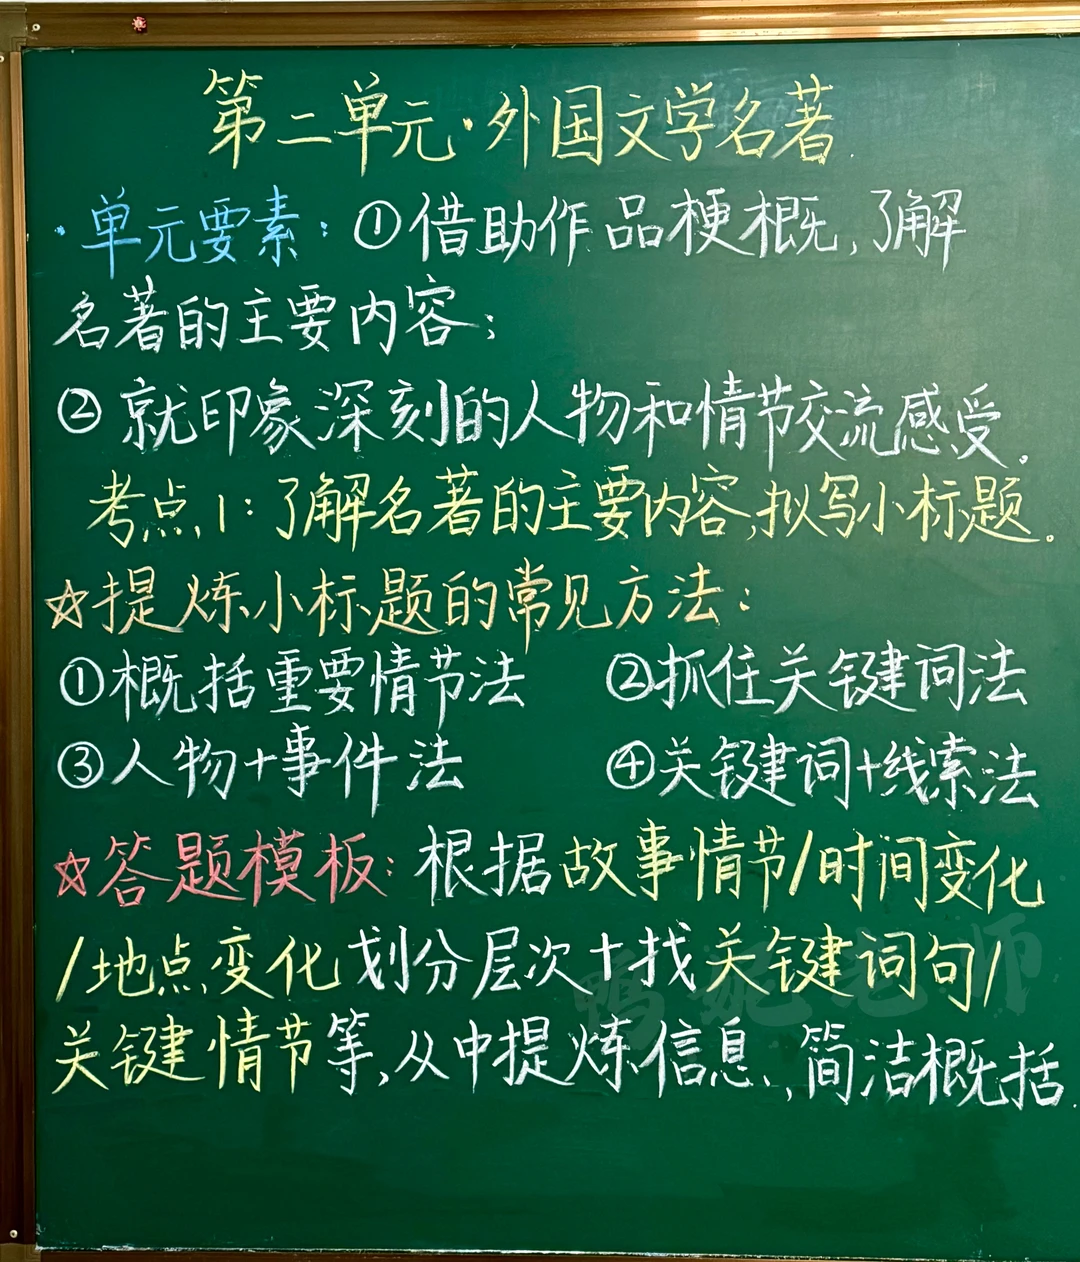 第二单元·外国文学名著
·单元要素：①借助作品梗概，了解
名著的主要内容；
②就印象深刻的人物和情节交流感受。
考点1：了解名著的主要内容，拟写小标题。
☆提炼小标题的常见方法：
①概括重要情节法 ②抓住关键词法
③人物+事件法 ④关键词+线索法
☆答题模板：根据故事情节/时间变化
/地点变化划分层次+找关键词句/
关键情节等，从中提炼信息，简洁概括.